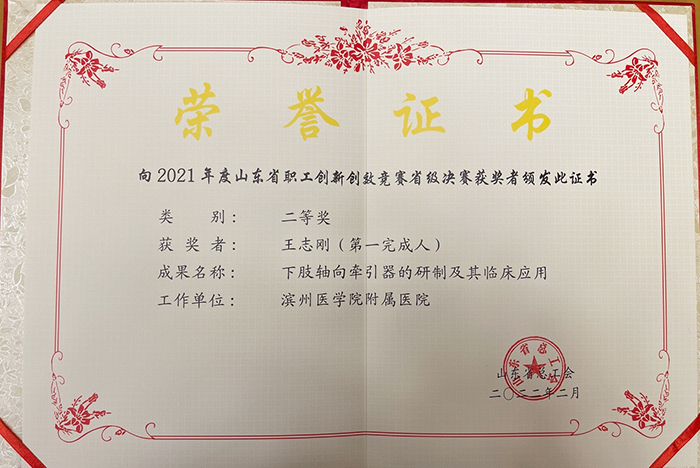 荣誉证书
向2021年度山东省职工创新创效竞赛省级决赛获奖者颁发此证书
类别：二等奖
获奖者：王志刚（第一完成人）
成果名称：下肢轴向牵引器的研制及其临床应用
工作单位：滨州医学院附属医院
山东省总工会
山东省总工会
二〇二二年二月